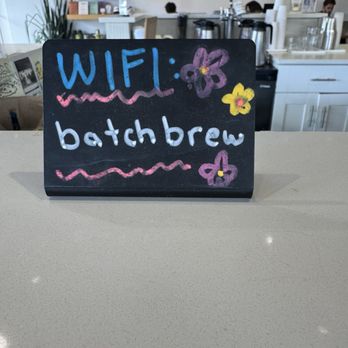 WIFI:
batch brew